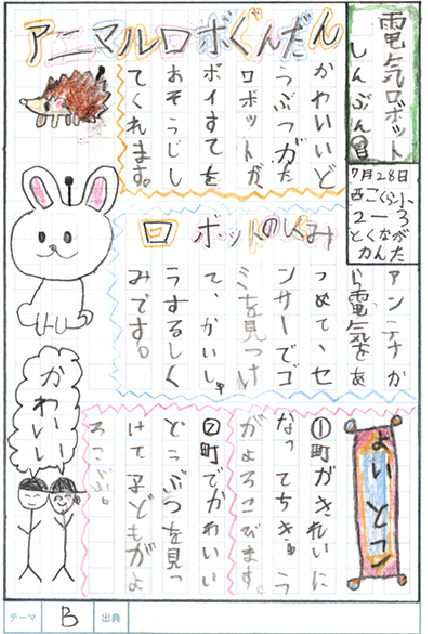 電気ロボット
しんぶん
7月28日
西こくら小
2-3
とくなが
かんた
アニマルロボぐんだん
かわいいど
うぶつがた
ロボットが、
ポイすてを
おそうじし
てくれます。
ロボットのしくみ
アンテナか
ら電気をあ
つめて、セ
ンサーでゴ
ミを見つけ
て、かいしゅ
うするしく
みです。
よいところ
①町がきれいに
なってちきゅう
がよろこびます。
②町でかわいい
どうぶつを見つ
けて子どもがよ
ろこぶ。
かわいい
テーマ B 出典